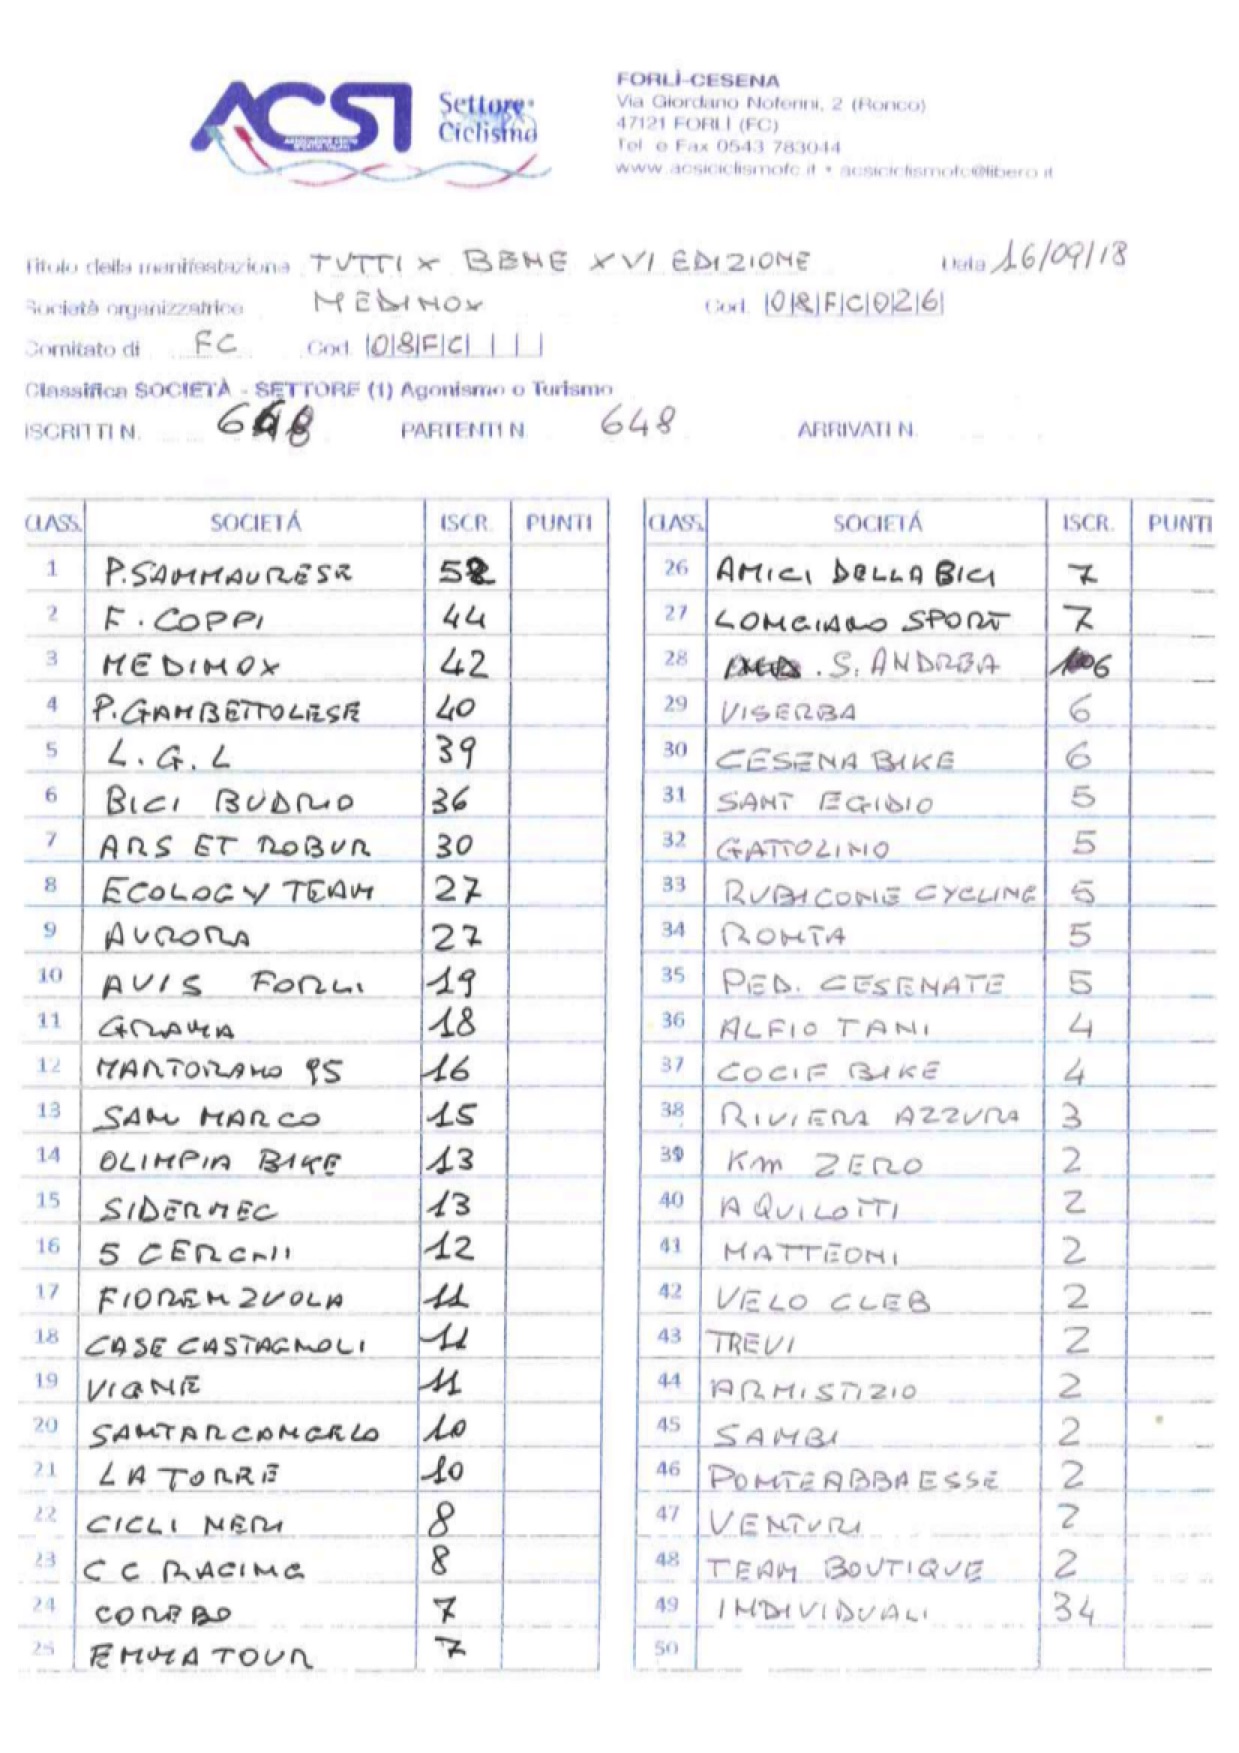 ACSI
Settore Ciclismo
FORLÌ-CESENA
Via Giordano Noferini, 2 (Ronco)
47121 FORLÌ (FC)
Tel. e Fax 0543 783044
www.acsiciclismofc.it • acsiciclismofc@libero.it
Titolo della manifestazione TUTTI X BENE XVI EDIZIONE Data 16/09/18
Società organizzatrice MEDINOX Cod. |0|8|F|C|0|2|6|
Comitato di FC Cod. |0|8|F|C| | | |
Classifica SOCIETÀ - SETTORE (1) Agonismo o Turismo
ISCRITTI N. 648 PARTENTI N. 648 ARRIVATI N.
CLASS. SOCIETÁ ISCR. PUNTI
1 P.SAMMAURESE 52
2 F. COPPI 44
3 MEDINOX 42
4 P.GAMBETTOLESE 40
5 L.G.L 39
6 BICI BUDRIO 36
7 ARS ET ROBUR 30
8 ECOLOGY TEAM 27
9 AURORA 27
10 AVIS FORLI 19
11 GRAMA 18
12 MARTORANO 95 16
13 SAN MARCO 15
14 OLIMPIA BIKE 13
15 SIDERMEC 13
16 5 CERCHI 12
17 FIORENZUOLA 11
18 CASE CASTAGNOLI 11
19 VIGNE 11
20 SANTARCANGELO 10
21 LA TORRE 10
22 CICLI NERI 8
23 C C RACING 8
24 COREBO 7
25 EMMA TOUR 7
CLASS. SOCIETÁ ISCR. PUNTI
26 AMICI DELLA BICI 7
27 LONGIANO SPORT 7
28 . S. ANDREA 6
29 VISERBA 6
30 CESENA BIKE 6
31 SANT EGIDIO 5
32 GATTOLINO 5
33 RUBICONE CYCLING 5
34 RONTA 5
35 PED. CESENATE 5
36 ALFIO TANI 4
37 COCIF BIKE 4
38 RIVIERA AZZURA 3
39 Km ZERO 2
40 AQUILOTTI 2
41 MATTEONI 2
42 VELO CLEB 2
43 TREVI 2
44 ARMISTIZIO 2
45 SAMBI 2
46 PONTEABBAESSE 2
47 VENTURI 2
48 TEAM BOUTIQUE 2
49 INDIVIDUALI 34
50